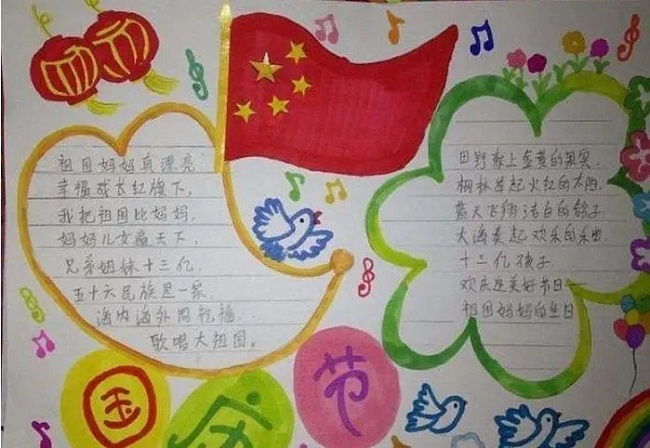 祖国妈妈真漂亮
幸福成长红旗下,
我把祖国比妈妈,
妈妈儿女遍天下,
兄弟姐妹十三亿.
五十六民族是一家,
海内海外同祝福,
歌唱大祖国。
田野献上金黄的果实,
枫林举起火红的太阳,
蓝天飞翔洁白的鸽子
大海奏起欢乐的乐曲
十三亿孩子
欢庆这美好节日
祖国妈妈的生日
国庆节